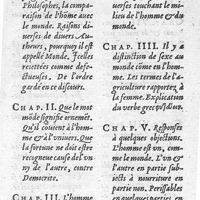 Philosophes, la compa-
raison de l'hõme auec
le monde. Raisõs di-
uerses de diuers Au-
theurs, pourquoy il est
appellé Monde, sfelles
reiettées comme defe-
ctueuses. De l'ordre
gardé en ce discours.
CHAP. II. Que le mot
mõde signifie ornemẽt.
Qu'il cõuient à l'hom-
me & à l'vniuers. Que
la fortune ne doit estre
recogneue cause de l'vn
ny de l'autre, contre
Democrite.
CHAP. III. L'homme
uerses touchant le mi-
lieu de l'homme & du
monde.
CHAP. IIII. Il y a
distinction de sexe au
monde cõme en l'hom-
me. Les termes de l'a-
griculture rapportez à
la femme. Explication
du verbe grec
CHAP. V. Responses
à quelques obiections.
L'homme est vn, com-
me le monde. L'vn &
l'autre en partie sub-
iects à nourriture en
partie non. Perissables
en quelques parties, en